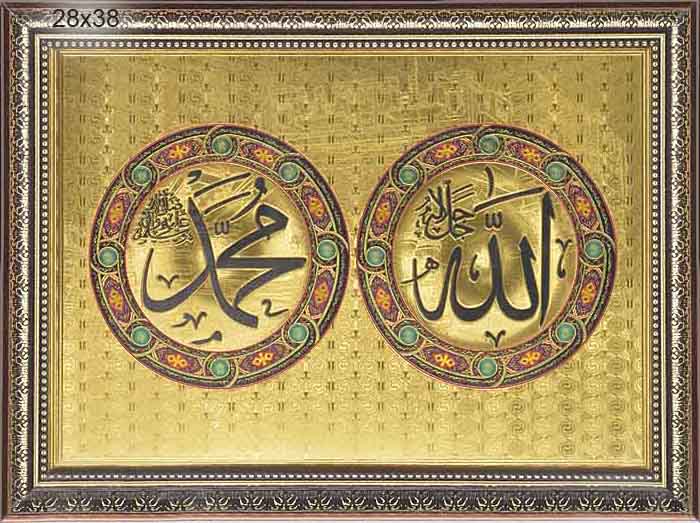 28x38
الله
جل جلاله
محمد
صلى الله عليه وسلم